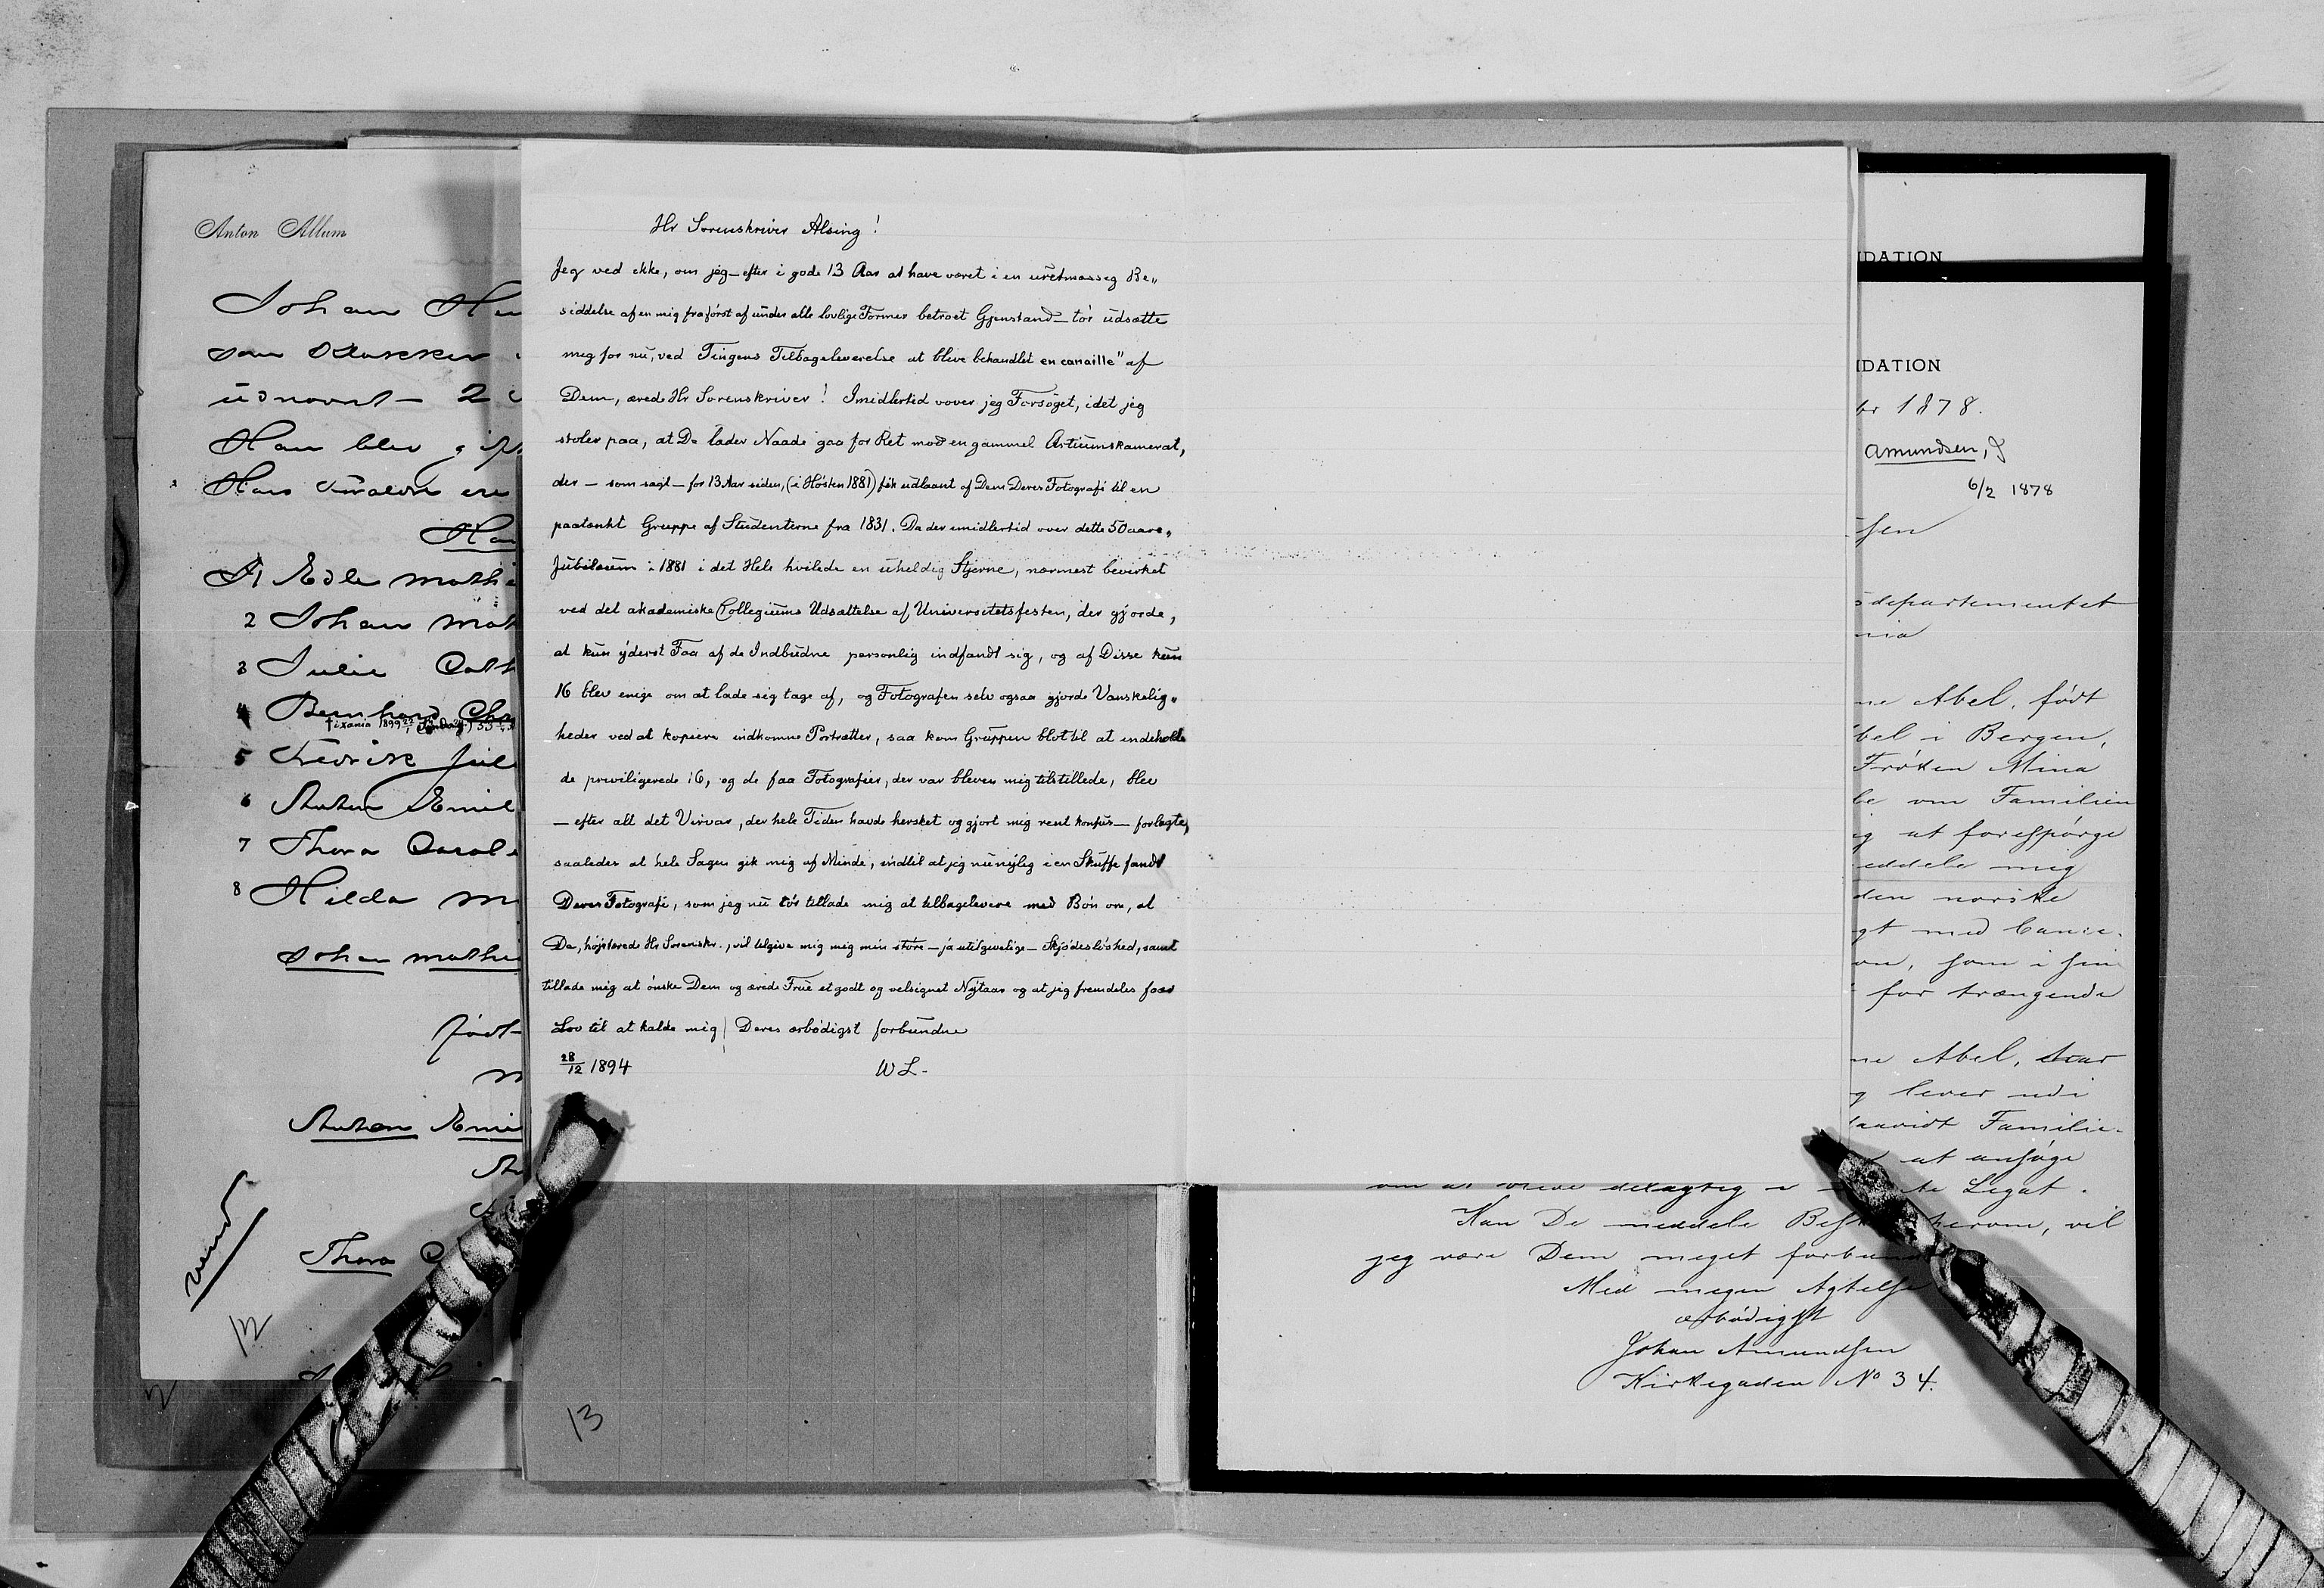 Anton Allum
Johan
som Klokker
udnævnt - 2
Han blev gift
Hans Forældre ere
1 Edle Mathi
2 Johan Mat
3 Julie Cath
4 Bernhard Chr
5 Fredrik Jul
6 Anton Emil
7 Thora Carol
8 Hilda M
Johan Mathi
født
Anton Emi
Thora C
vend
12
Hr Sorenskriver Alsing!
Jeg ved ikke, om jeg – efter i gode 13 Aar at have været i en uretmæssig Be„
siddelse af en mig fra først af under alle lovlige Former betroet Gjenstand – tör udsætte
mig for nu, ved Tingens Tilbageleverelse at blive behandlet en canaille" af
Dem, ærede Hr Sorenskriver! Imidlertid vover jeg Forsöget, idet jeg
stoler paa, at De lader Naade gaa for Ret mod en gammel Artiumskamerat,
der – som sagt – for 13 Aar siden, (i Hösten 1881) fik udlaant af Dem Deres Fotografi til en
paatænkt Gruppe af Studenterne fra 1831. Da der imidlertid over dette 50aars„
Jubilæum i 1881 i det Hele hvilede en uheldig Stjerne, nærmest bevirket
ved det akademiske Collegiums Udsættelse af Universitetsfesten, der gjorde,
at kun yderst Faa af de Indbudne personlig indfandt sig, og af Disse kun
16 blev enige om at lade sig tage af, og Fotografen selv ogsaa gjorde Vanskelig„
heder ved at kopiere indkomne Portrætter, saa kom Gruppen blot til at indeholde
de priviligerede 16, og de faa Fotografier, der var bleven mig tilstillede, blev
– efter alt det Virvar, der hele Tiden havde hersket og gjort mig rent konfus – forlagte,
saaledes at hele Sagen gik mig af Minde, indtil at jeg nu nylig i en Skuffe fandt
Deres Fotografi, som jeg nu tör tillade mig at tilbagelevere med Bön om, at
De, höjstærede Hr Sorenskr., vil tilgive mig mig min store – ja utilgivelige – Skjödeslöshed, samt
tillade mig at önske Dem og ærede Frue et godt og velsignet Nytaar og at jeg fremdeles faar
Lov til at kalde mig / Deres ærbödigst forbundne
28/12 1894 W L.
13
IDATION
IDATION
br 1878.
Amundsen, J
6/2 1878
departementet
ne Abel, født
bel i Bergen,
Fröken Mina
be om Familien
ig at forespørge
eddele mig
den norske
gt med Cancel
on, som i sin
for trængende
ne Abel, har
g lever udi
saavidt Familie
at ansøge
om at være delagtig i Legat.
Kan De meddele herom, vil
jeg være Dem meget
Med megen Agtelse
ærbödigst
Johan Amundsen
Kirkegaden No 34.